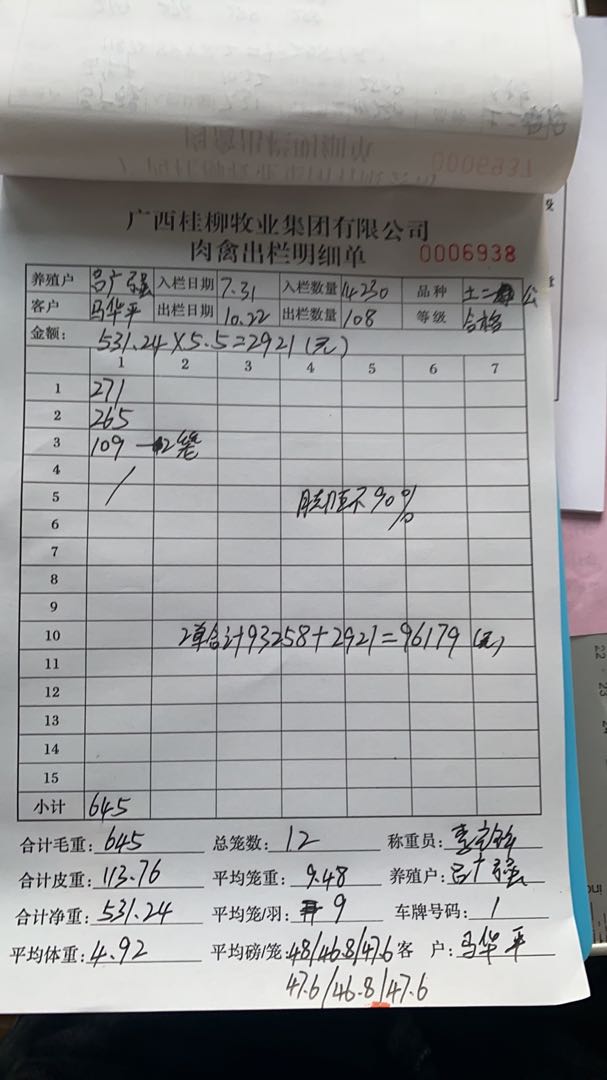 0006937
广西桂柳牧业集团有限公司
肉禽出栏明细单 0006938
养殖户 入栏日期 7.31 入栏数量 14230 品种 土二 公
客户 马华平 出栏日期 10.22 出栏数量 108 等级 合格
金额: 531.24×5.5=2921(元)
1 2 3 4 5 6 7
1 271
2 265
3 109 —2笼
4 /
5 90%
6
7
8
9
10 2单合计93258+2921=96179(元)
11
12
13
14
15
小计 645
合计毛重: 645 总笼数: 12 称重员:
合计皮重: 113.76 平均笼重: 9.48 养殖户:
合计净重: 531.24 平均笼/羽: 9 车牌号码: 1
平均体重: 4.92 平均磅/笼: 48/46.8/47.6 客 户: 马华平
47.6/46.8/47.6